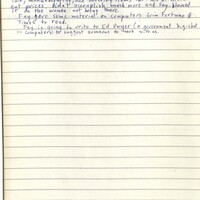 got prices. Didn't accomplish much more and Fay blamed
it on the women not being there.
Fay gave some material on computers from Fortune &
Times to read.
Fay is going to write to Ed (a government big-shot
in computers) to suggest someone to work with us.